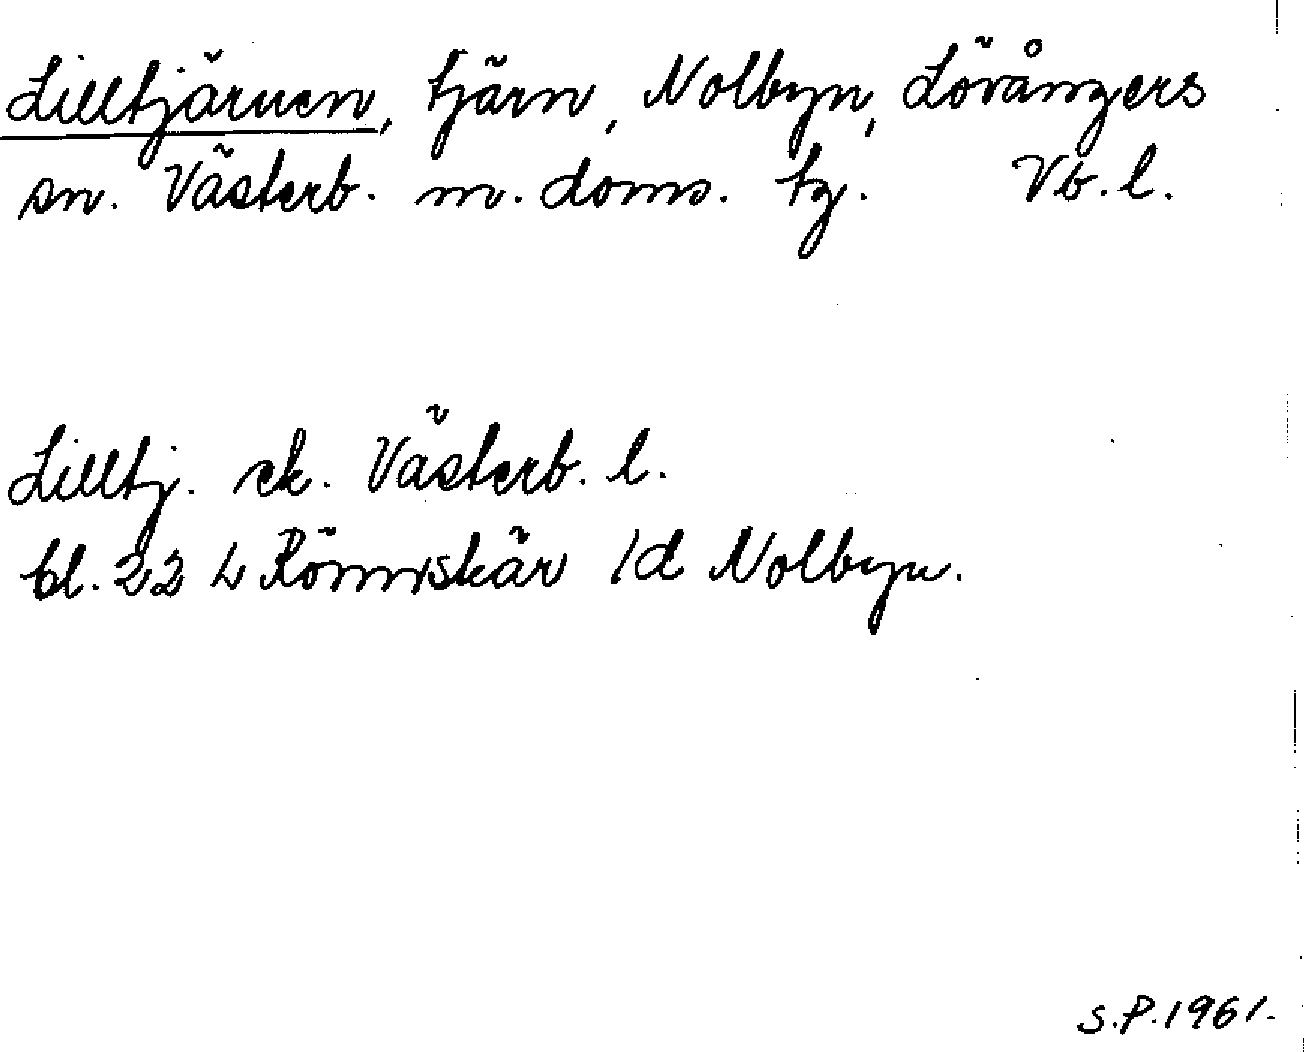 Lilltjärnen, tjärn, Nolbyn, Lövångers
sn. Västerb. m. doms. tg. Vb. l.
Lilltj. ek. Västerb. l.
bl. 22 L Rönnskär /d Nolbyn.
S.P. 1961.